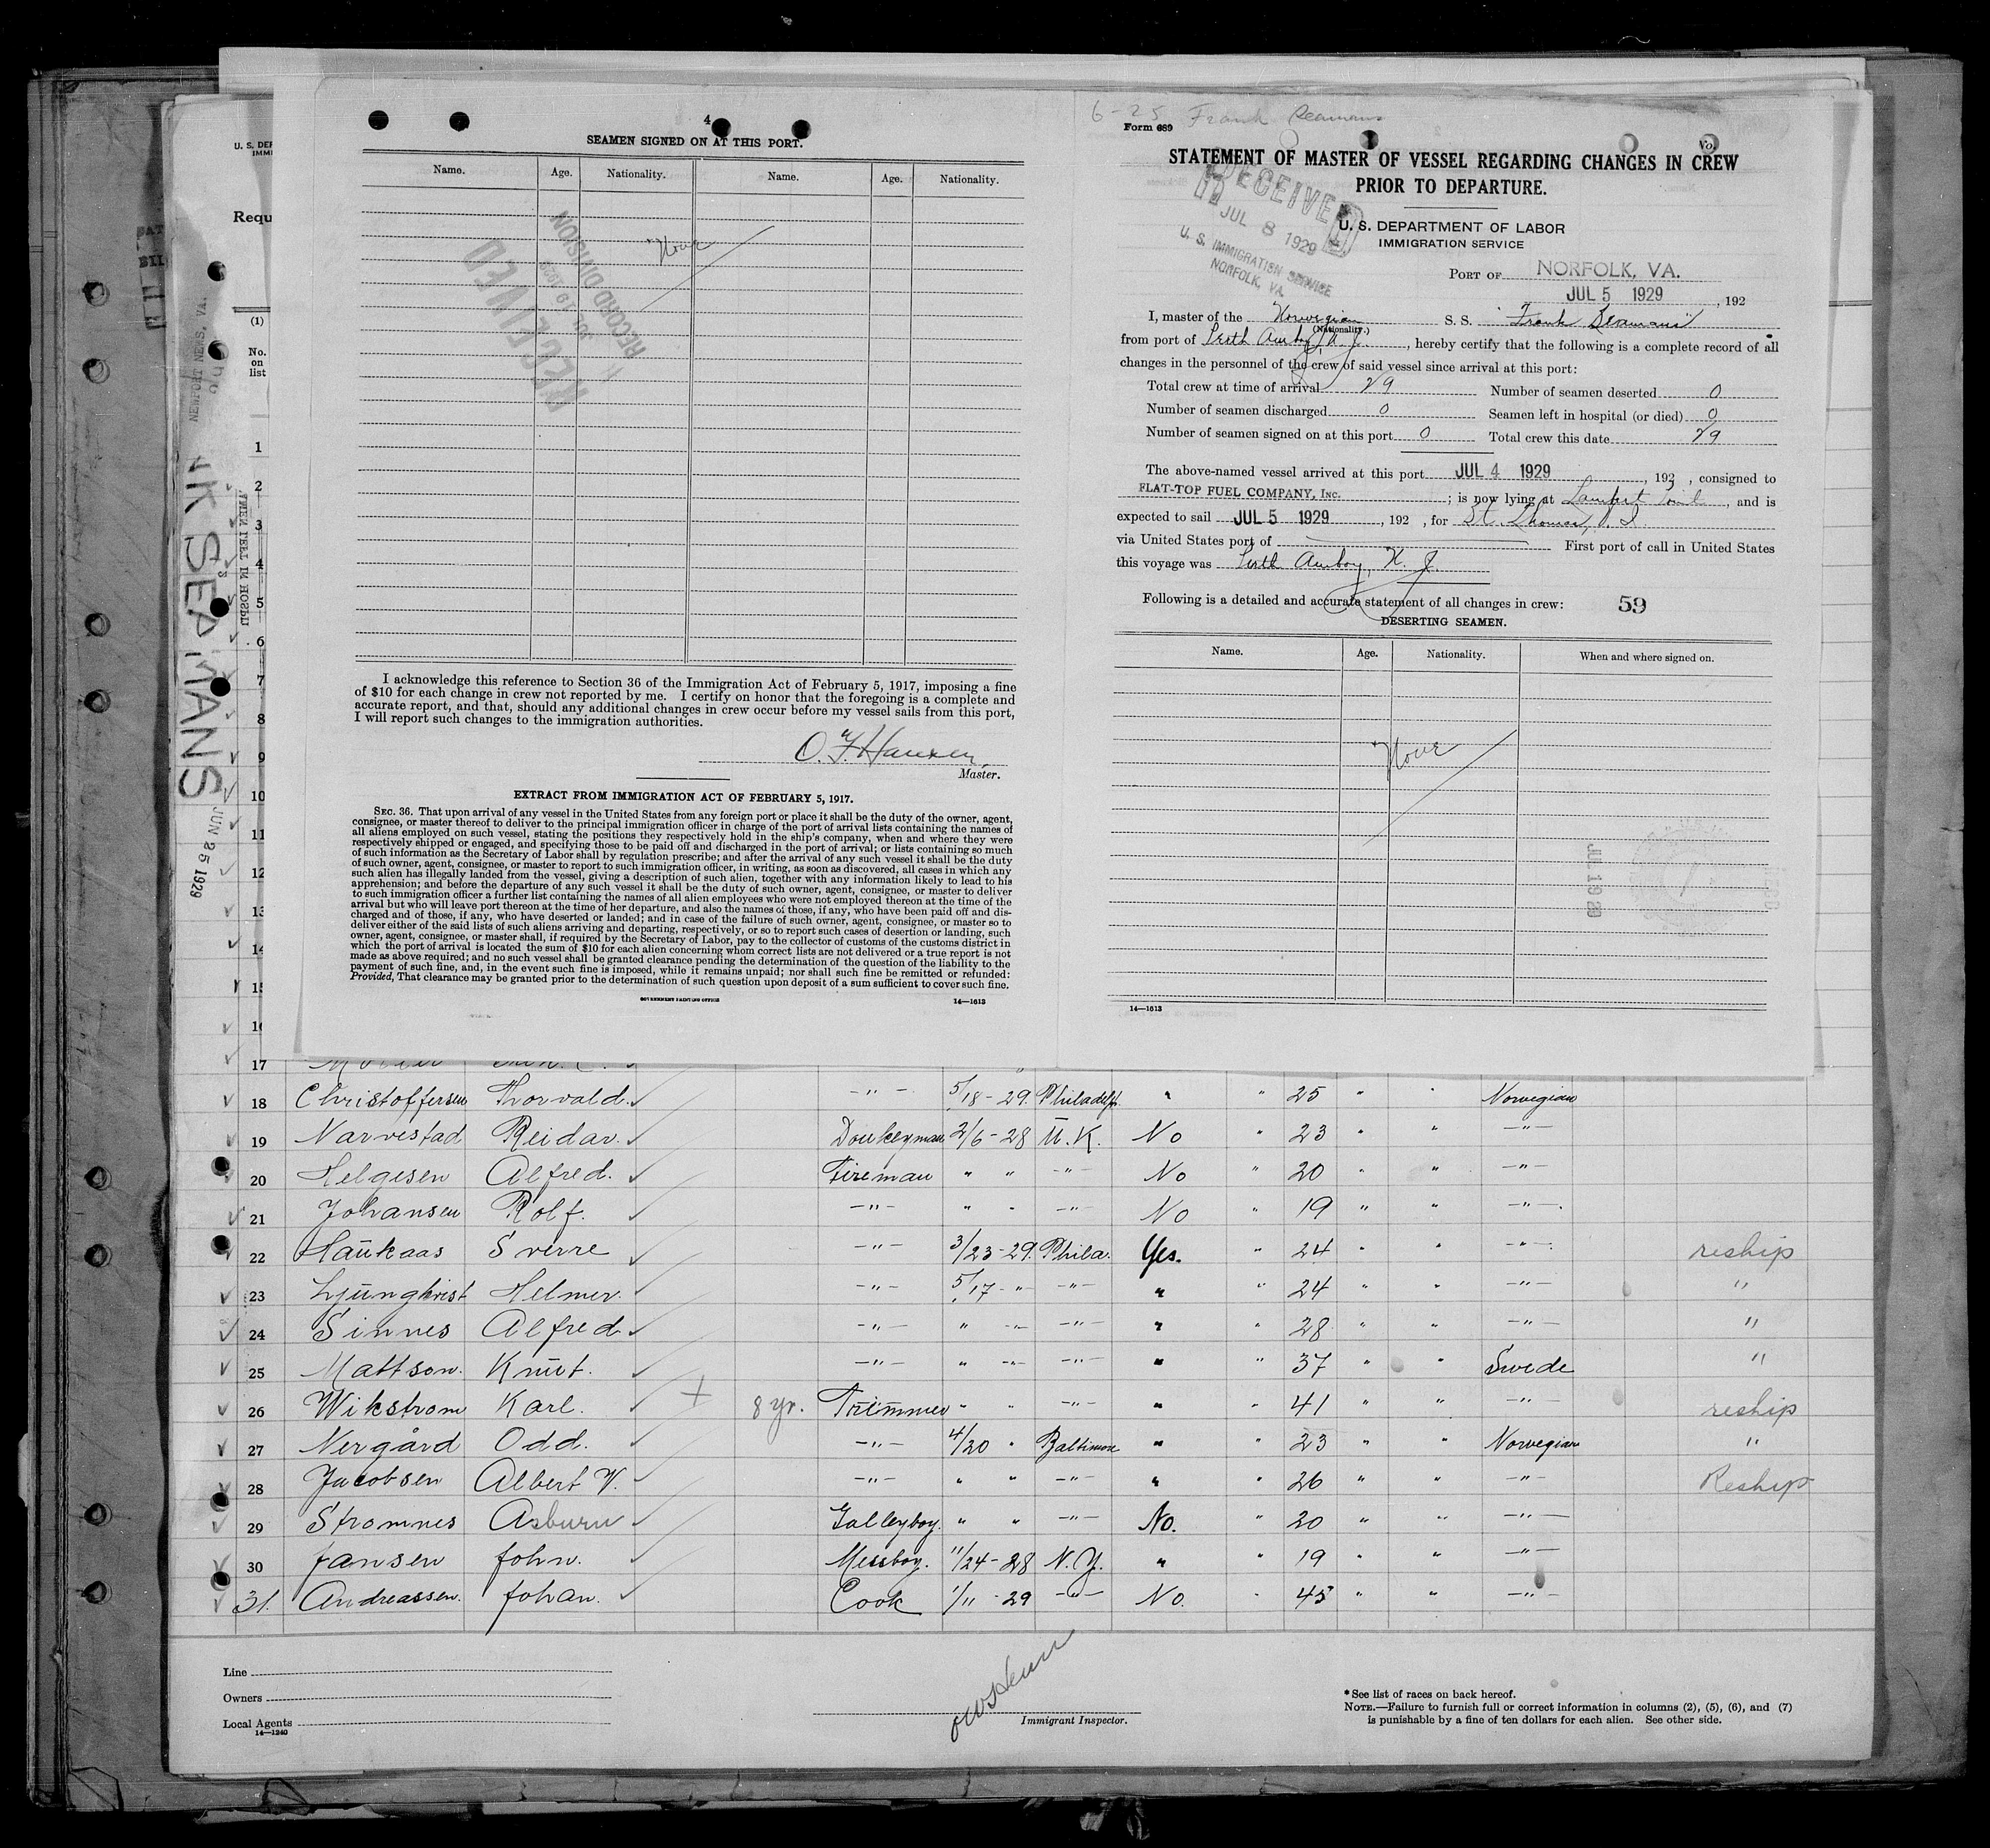 4
SEAMEN SIGNED ON AT THIS PORT.
Name. Age. Nationality. Name. Age. Nationality.
None
RECEIVED
JUL 19 1929
RECORD DIVISION
I acknowledge this reference to Section 36 of the Immigration Act of February 5, 1917, imposing a fine
of $10 for each change in crew not reported by me. I certify on honor that the foregoing is a complete and
accurate report, and that, should any additional changes in crew occur before my vessel sails from this port,
I will report such changes to the immigration authorities.
O. F. Hansen
Master.
EXTRACT FROM IMMIGRATION ACT OF FEBRUARY 5, 1917.
SEC. 36. That upon arrival of any vessel in the United States from any foreign port or place it shall be the duty of the owner, agent,
consignee, or master thereof to deliver to the principal immigration officer in charge of the port of arrival lists containing the names of
all aliens employed on such vessel, stating the positions they respectively hold in the ship's company, when and where they were
respectively shipped or engaged, and specifying those to be paid off and discharged in the port of arrival; or lists containing so much
of such information as the Secretary of Labor shall by regulation prescribe; and after the arrival of any such vessel it shall be the duty
of such owner, agent, consignee, or master to report to such immigration officer, in writing, as soon as discovered, all cases in which any
such alien has illegally landed from the vessel, giving a description of such alien, together with any information likely to lead to his
apprehension; and before the departure of any such vessel it shall be the duty of such owner, agent, consignee, or master to deliver
to such immigration officer a further list containing the names of all alien employees who were not employed thereon at the time of the
arrival but who will leave port thereon at the time of her departure, and also the names of those, if any, who have been paid off and dis-
charged and of those, if any, who have deserted or landed; and in case of the failure of such owner, agent, consignee, or master so to
deliver either of the said lists of such aliens arriving and departing, respectively, or so to report such cases of desertion or landing, such
owner, agent, consignee, or master shall, if required by the Secretary of Labor, pay to the collector of customs of the customs district in
which the port of arrival is located the sum of $10 for each alien concerning whom correct lists are not delivered or a true report is not
made as above required; and no such vessel shall be granted clearance pending the determination of the question of the liability to the
payment of such fine, and, in the event such fine is imposed, while it remains unpaid; nor shall such fine be remitted or refunded:
Provided, That clearance may be granted prior to the determination of such question upon deposit of a sum sufficient to cover such fine.
GOVERNMENT PRINTING OFFICE 14—1613
6-25 Frank Seamans
Form 689
No.
STATEMENT OF MASTER OF VESSEL REGARDING CHANGES IN CREW
PRIOR TO DEPARTURE.
RECEIVED
JUL 8 1929
U. S. IMMIGRATION SERVICE
NORFOLK, VA.
U. S. DEPARTMENT OF LABOR
IMMIGRATION SERVICE
PORT OF NORFOLK, VA.
JUL 5 1929, 192
I, master of the Norwegian S. S. "Frank Seamans"
(Nationality.)
from port of Perth Amboy, N. J., hereby certify that the following is a complete record of all
changes in the personnel of the crew of said vessel since arrival at this port:
Total crew at time of arrival 29 Number of seamen deserted 0
Number of seamen discharged 0 Seamen left in hospital (or died) 0
Number of seamen signed on at this port 0 Total crew this date 29
The above-named vessel arrived at this port JUL 4 1929, 192 , consigned to
FLAT-TOP FUEL COMPANY, Inc.; is now lying at Lambert Point, and is
expected to sail JUL 5 1929, 192 , for St. Thomas, V. I.
via United States port of First port of call in United States
this voyage was Perth Amboy, N. J.
Following is a detailed and accurate statement of all changes in crew: 59
DESERTING SEAMEN.
Name. Age. Nationality. When and where signed on.
None
14—1613
U. S. DEP
IMMI
Requ
(1)
No.
on
list
NEWPORT NEWS, VA.
NK SEAMANS
JUN 25 1929
1
2
3
4
5
6
7
8
9
10
11
12
13
14
15
16
17
18 Christoffersen Thorvald. —"— 5/18-29. Philadelp. " " 25 " " Norwegian
19 Narvestad Reidar. Donkeyman 2/6-28 U.K. No " 23 " " —"—
20 Helgesen Alfred. Fireman " " —"— No " 20 " " —"—
21 Johansen Rolf. —"— " " —"— No " 19 " " —"—
22 Haukaas Sverre —"— 3/23-29. Phila. Yes. " 24 " " —"— reship
23 Ljungkvist Helmer. —"— 5/17-" —"— " " 24 " " —"— "
24 Sinnes Alfred —"— " —"— —"— " " 28 " " —"— "
25 Mattson. Knut. —"— " —"— —"— " " 37 " " Swede "
26 Wikstrom Karl. 8 yr. Trimmer " " —"— " " 41 " " —"— reship
27 Nergård Odd. —"— 4/20 " Baltimore " " 23 " " Norwegian "
28 Jacobsen Albert V. —"— " " —"— " " 26 " " —"— Reship
29 Stromnes Asburn Galleyboy. " " —"— No. " 20 " " —"—
30 Jansen John. Messboy. 11/24-28 N.Y. " " 19 " " —"—
31. Andreassen. Johan. Cook 1/11-29 —"— No. " 45 " " —"—
Line
Owners
Local Agents
14—1240
Immigrant Inspector.
*See list of races on back hereof.
NOTE.—Failure to furnish full or correct information in columns (2), (5), (6), and (7)
is punishable by a fine of ten dollars for each alien. See other side.